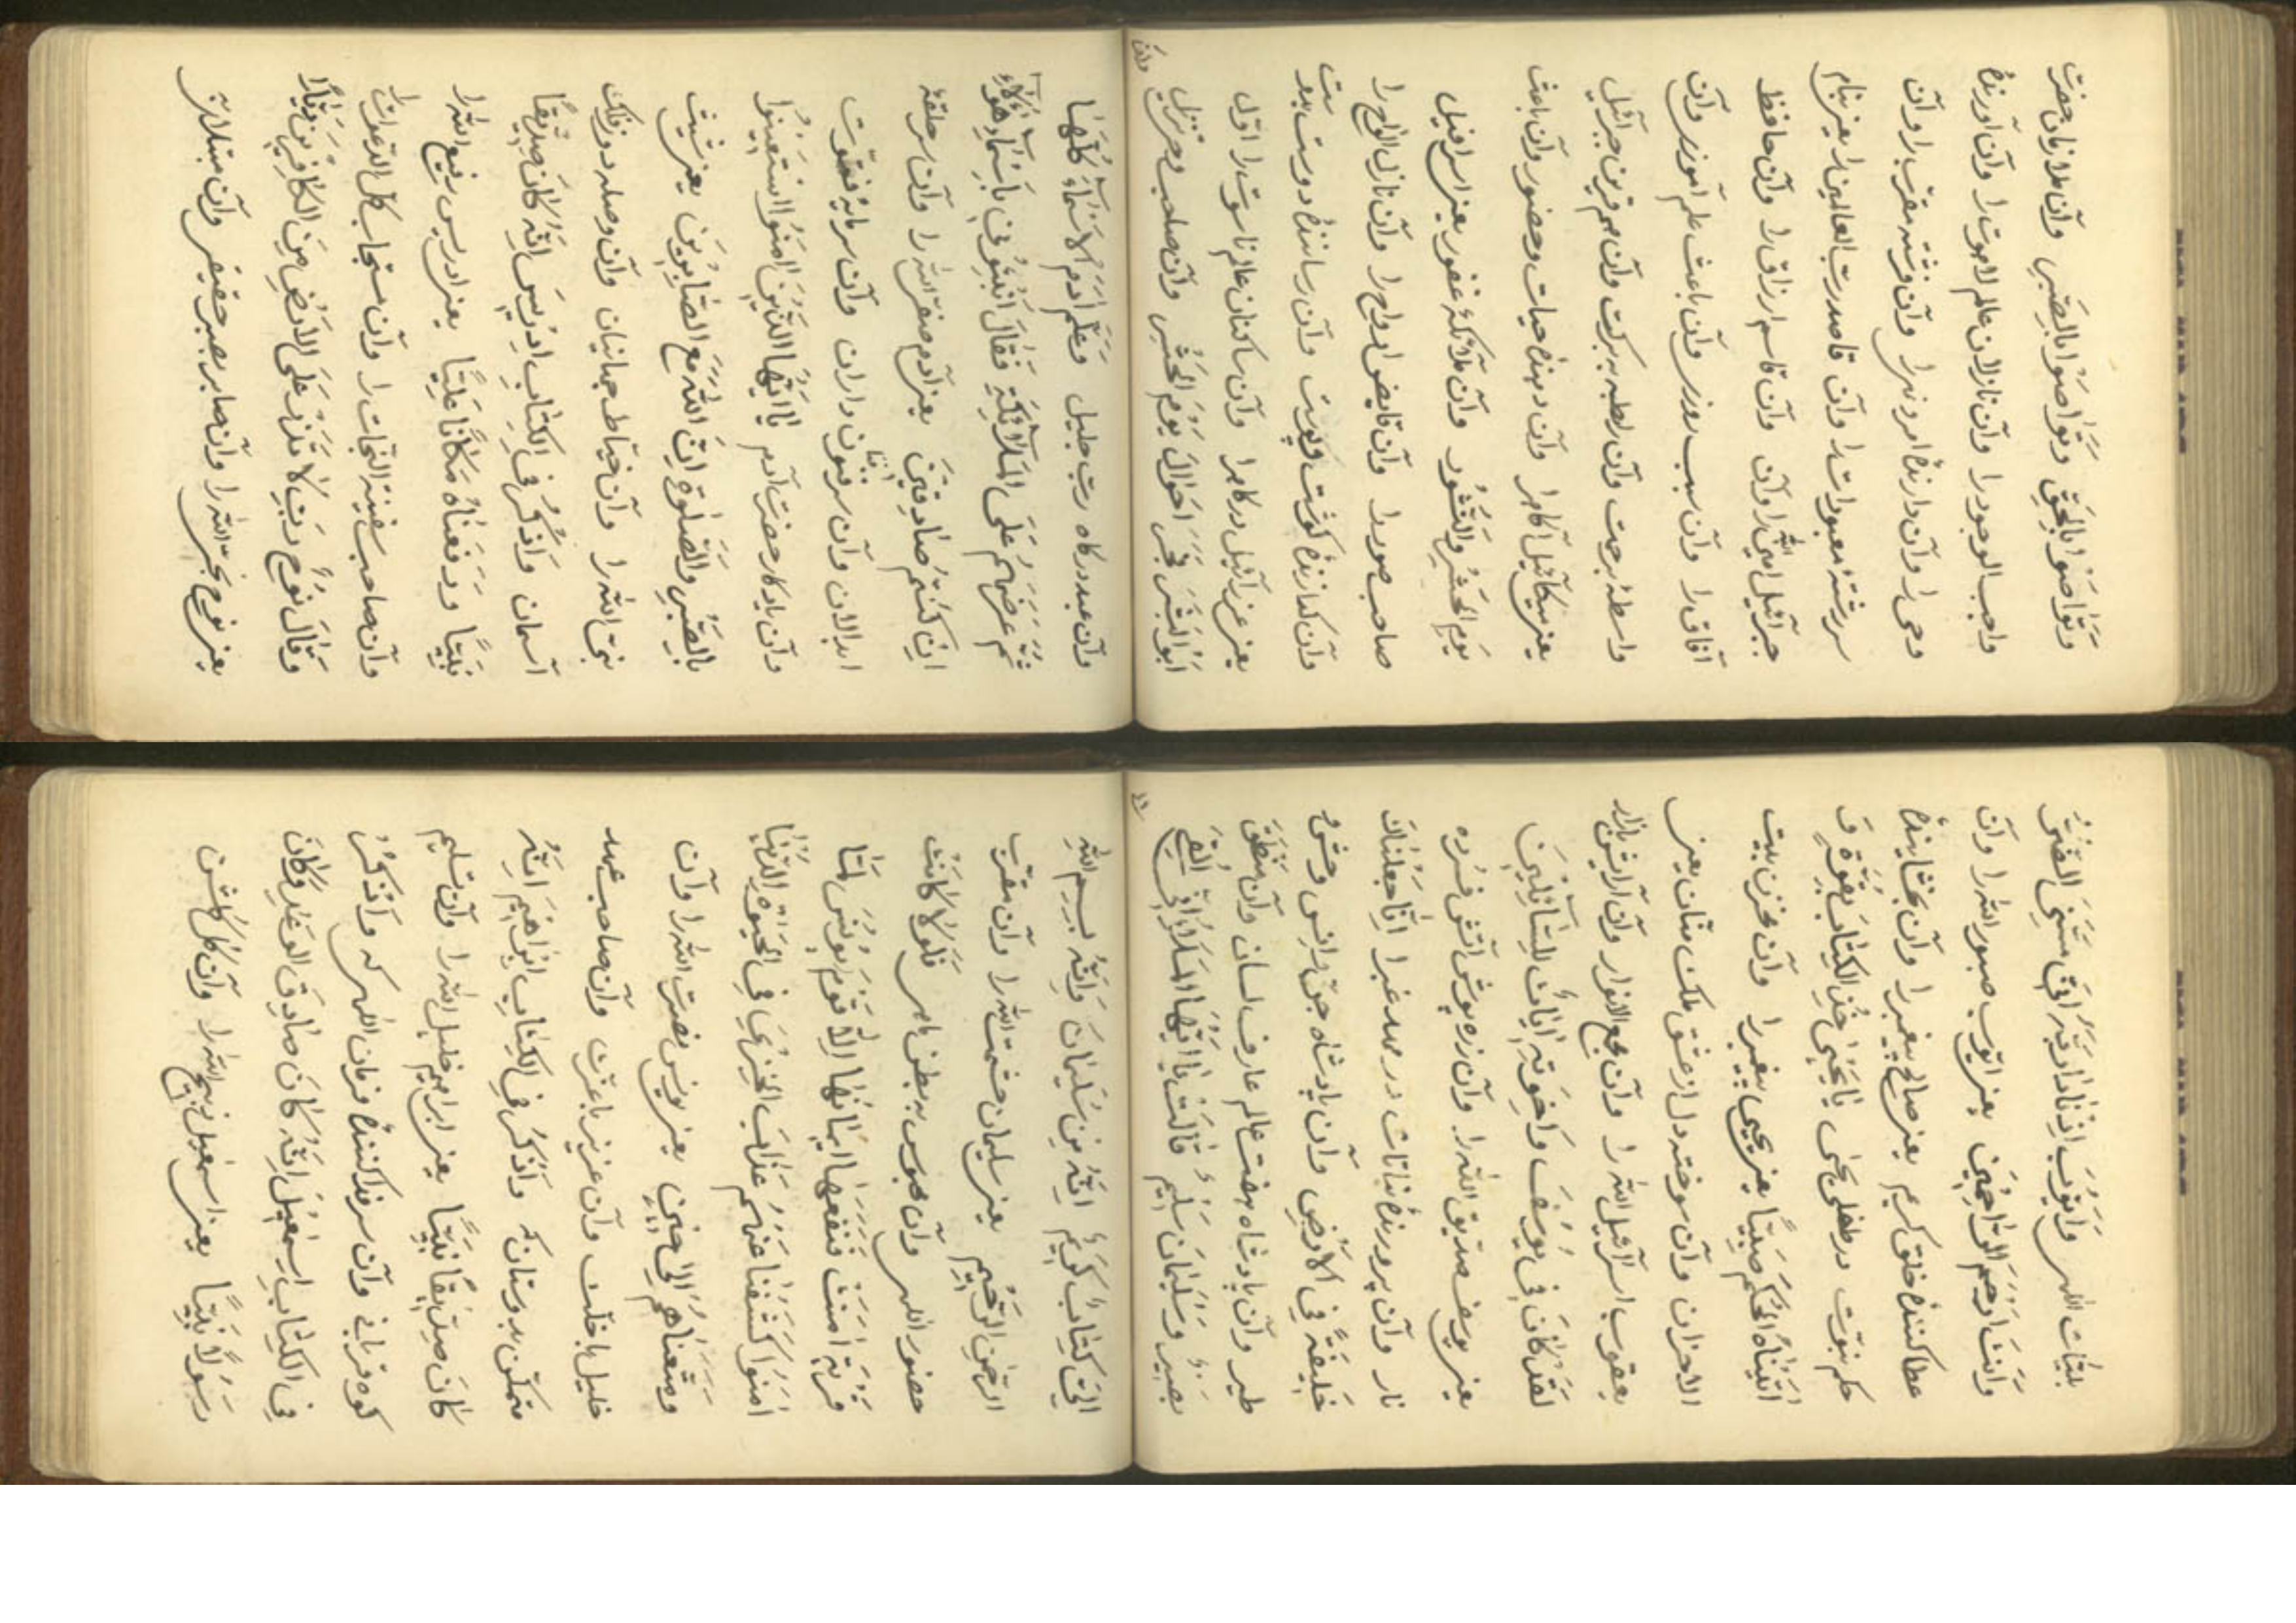 وَتَوَاصَوْا بِالْحَقِّ وَتَوَاصَوْا بِالصَّبْرِ وآن ملازمان حضرت
واجب الوجود را وآن نازلان عالم لاهوت را وآن آورندۀ
وحی را وآن دارندۀ امر ونهی را وآن فرشته مقرّب را وآن
سررشتۀ معبودات را وآن قاصد ربّ العالمین را یعنی بنام
جبرآئیل امین الله را وآن قاسم ارزاق را وآن حافظ
آفاق را وآن سبب روزی وآن باعث علم آموزی وآن
واسطۀ رحمت وآن رابطه برکت وآن هم قرین جبرآئیل
یعنی میکآئیل آگاه را وآن دهندۀ حیات وحضور وآن باعث
یَوْمِ الْحَشْرِ وَالنُّشُور وآن ملآئکۀ غفور یعنی اسرافیل
صاحب صور را وآن قابض ارواح را وآن نازل الواح را
وآن کدازندۀ کوشت وپوست وآن رسانندۀ دوست بدوست
یعنی عزرآئیل درکاه را وآن ساکنان عالم ناسوت را اوّل
اَبُو الْبَشَر فَخْر اَحْوَال یَوْمَ الْحَشْر وآن صاحب وحی تنزیل
وآن عبد درکاه ربّ جلیل وَعَلَّمَ اٰدَمَ الْاَسْمَآءَ كُلَّهَا
ثُمَّ عَرَضَهُمْ عَلَى الْمَلٰٓئِكَةِ فَقَالَ اَنْبِئُونِي بِاَسْمَآءِ هٰٓؤُلَآءِ
اِنْ كُنْتُمْ صَادِقِينَ یعنی آدم صفی الله را وآن سر حلقۀ
ابدالان وآن سر فنون داران وآن سرمایۀ فتوّت
وآن یادکار حضرت آدم یَا اَيُّهَا الَّذِينَ اٰمَنُوا اسْتَعِينُوا
بِالصَّبْرِ وَالصَّلٰوةِ اِنَّ اللّٰهَ مَعَ الصَّابِرِينَ یعنی شیث
نبیّ الله را وآن خیّاط جهانیان وآن وصله دوز فلک
آسمان وَاذْكُرْ فِي الْكِتَابِ اِدْرِيسَ اِنَّهُ كَانَ صِدِّيقًا
نَبِيًّا وَرَفَعْنَاهُ مَكَانًا عَلِيًّا یعنی ادریس رفیع الله را
وآن صاحب سفینة النّجات را وآن مستجاب كلّ الدّعوات را
وَقَالَ نُوحٌ رَبِّ لَا تَذَرْ عَلَى الْاَرْضِ مِنَ الْكَافِرِينَ دَيَّارًا
یعنی نوح نجیّ الله را وآن صابر بصبر حقیقی وآن مبتلا بین
بلیّات اللهی وَاَيُّوبَ اِذْ نَادٰى رَبَّهُ اَنِّي مَسَّنِيَ الضُّرُّ
وَاَنْتَ اَرْحَمُ الرَّاحِمِينَ یعنی ایّوب صبور الله را وآن
عطا کنندۀ خلق کریم یعنی صالح پیغمبر را وآن بخشایندۀ
حکم نبوّت در طفلی یحیٰی یَا يَحْيٰى خُذِ الْكِتَابَ بِقُوَّةٍ وَ
اٰتَيْنَاهُ الْحُكْمَ صَبِيًّا یعنی یحیی پیغمبر را وآن محزن بیت
الاحزان وآن سوخته دل از عشق ملک منّان یعنی
یعقوب اسرآئیل الله را وآن مجمع الانوار وآن آرایش بازار
لَقَدْ كَانَ فِي يُوسُفَ وَاِخْوَتِهِ اٰيَاتٌ لِلسَّآئِلِينَ
یعنی یوسف صدیق الله را وآن زره پوش آتش فسرده
نار وآن پرورندۀ نباتات در مهد غبرا اِنَّا جَعَلْنَاكَ
خَلِيفَةً فِي الْاَرْضِ وآن پادشاه جنّ وانس وحش و
طیر وآن پادشاه هفت عالم عارف لسان وآن منطق
بصیر وسلیمان سلیم قَالَتْ يَا اَيُّهَا الْمَلَؤُا اِنِّي اُلْقِيَ
اِلَيَّ كِتَابٌ كَرِيمٌ اِنَّهُ مِنْ سُلَيْمَانَ وَاِنَّهُ بِسْمِ اللّٰهِ
الرَّحْمٰنِ الرَّحِيمِ یعنی سلیمان حشمت الله را وآن مقرّب
حضور اللهی وآن محبوس به بطن ماهی فَلَوْلَا كَانَتْ
قَرْيَةٌ اٰمَنَتْ فَنَفَعَهَا اِيمَانُهَا اِلَّا قَوْمَ يُونُسَ لَمَّا
اٰمَنُوا كَشَفْنَا عَنْهُمْ عَذَابَ الْخِزْيِ فِي الْحَيٰوةِ الدُّنْيَا
وَمَتَّعْنَاهُمْ اِلٰى حِينٍ یعنی یونس نصرت الله را وآن
خلیل با خلّت وآن عزیز با عزّت وآن صاحب عهد
متمکّن بدوستان که وَاذْكُرْ فِي الْكِتَابِ اِبْرَاهِيمَ اِنَّهُ
كَانَ صِدِّيقًا نَبِيًّا یعنی ابراهیم خلیل الله را وآن تسلیم
کوه قربانی وآن سر فدا کنندۀ فرمان اللهی که وَاذْكُرْ
فِي الْكِتَابِ اِسْمٰعِيلَ اِنَّهُ كَانَ صَادِقَ الْوَعْدِ وَكَانَ
رَسُولًا نَبِيًّا یعنی اسمعیل ذبیح الله را وآن کل کلشن